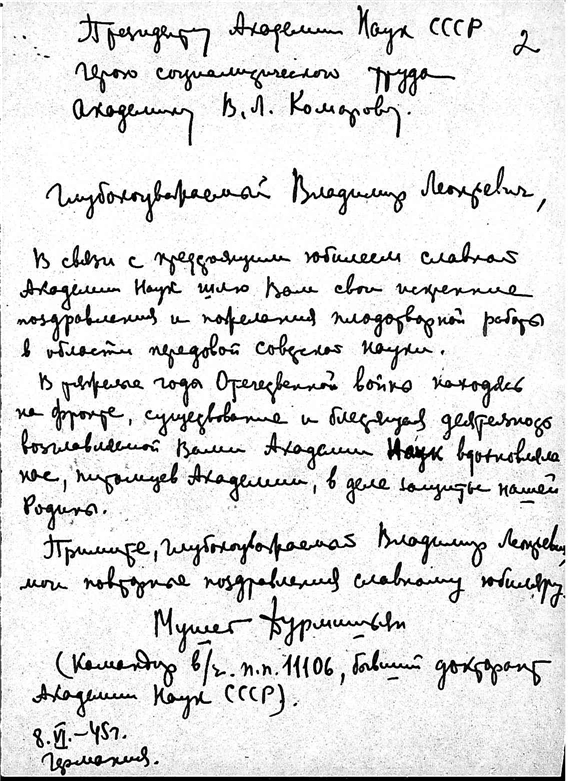 Президенту Академии Наук СССР
2
герою социалистического труда
академику В. Л. Комарову.
Глубокоуважаемый Владимир Леонтьевич,
В связи с предстоящим юбилеем славной
Академии Наук шлю Вам свои искренние
поздравления и пожелания плодотворной работы
в области передовой советской науки.
В тяжелые годы Отечественной войны находясь
на фронте, существование и блестящая деятельность
возглавляемой Вами Академии Наук вдохновляла
нас, питомцев Академии, в деле защиты нашей
Родины.
Примите, глубокоуважаемый Владимир Леонтьевич,
мои повторные поздравления славному юбиляру.
Мушег
(Командир в/ч. п.п. 11106, бывший докторант
Академии Наук СССР).
8.VI.–45г.
Германия.